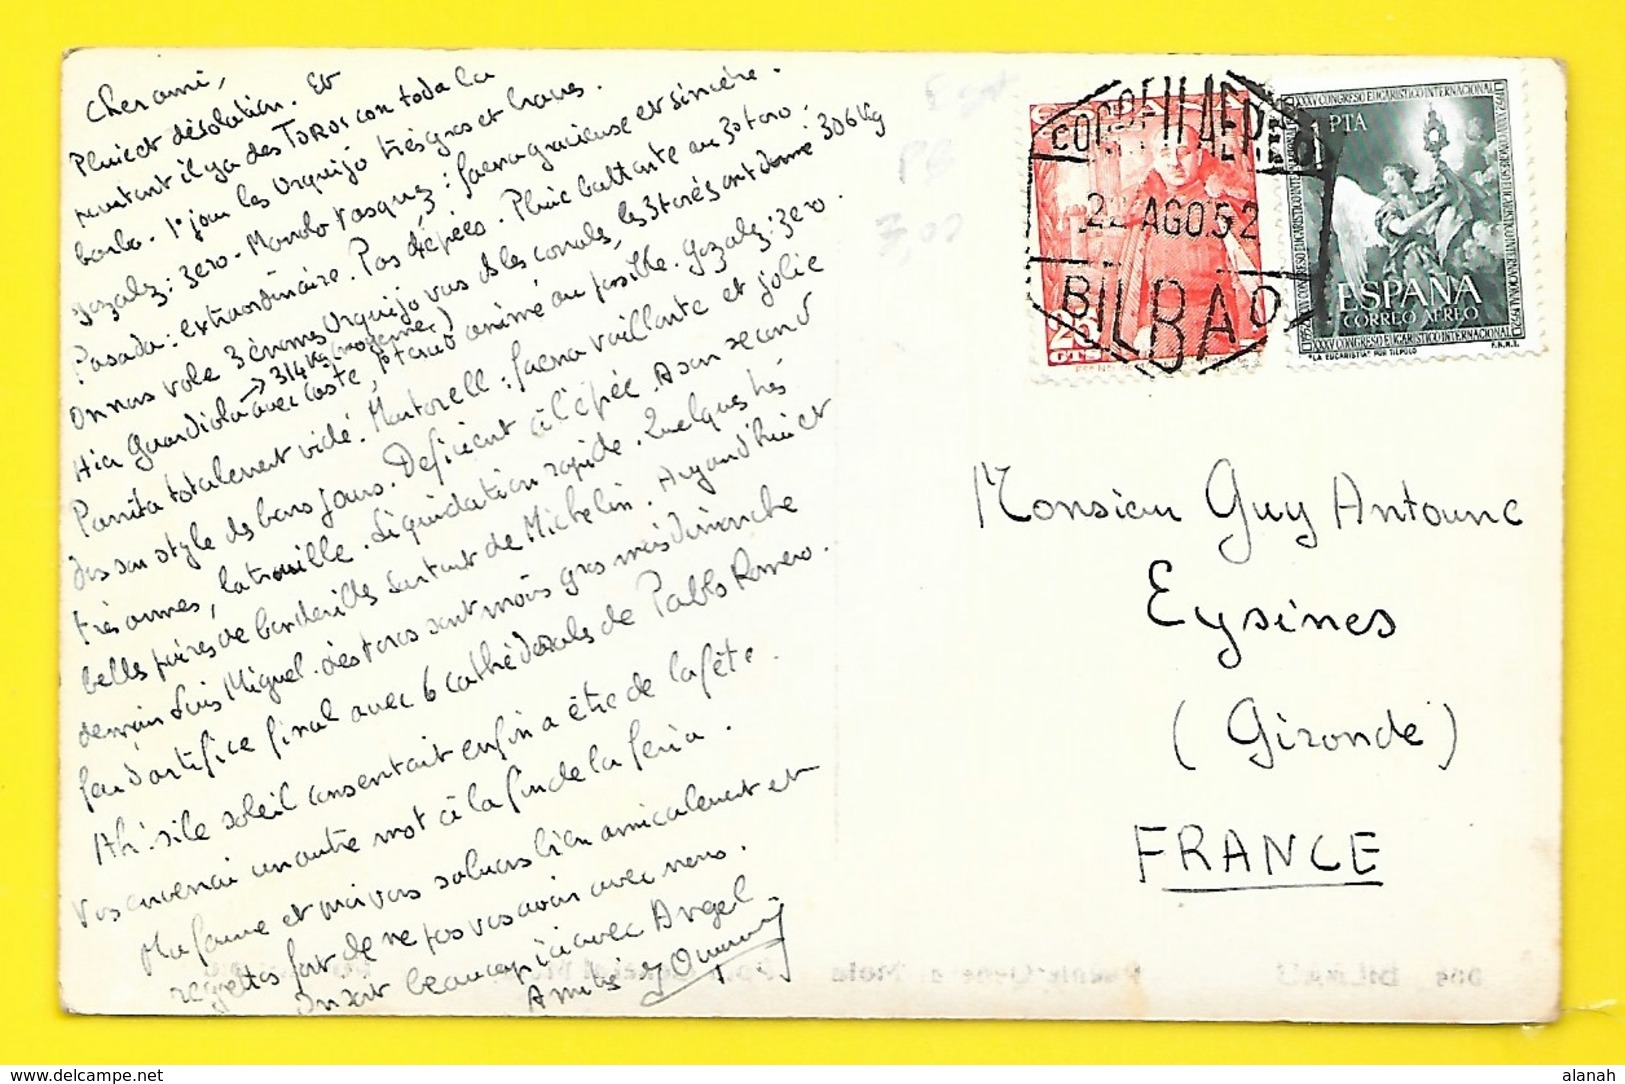 Cher ami,
Pluie et désolation. Et
pourtant il y a des TOROS con toda la
barba. 1° jour les Urquijo très gros et braves.
Gozalez : zero - Manolo Vasquez : faena gracieuse et sincère.
Pasada : extraordinaire. Pas d'épées. Pluie battante au 3° toro.
On nous vole 3 énormes Urquijo vus ds les corrals, les 3 torés ont donné 306 kg
→ 314 kg (moyenne)
Hier Guardiola avec caste, 1° toro animé au possible. Gozalez : zero.
Parrita totalement vidé. Martorell : faena vaillante et jolie
ds son style des bons jours. Déficient à l'épée. A son second
très armes, la trouille. Liquidation rapide. Quelques très
belles paires de banderilles surtout de Michelin. Aujourd'hui et
demain Luis Miguel. Les toros sont moins gros mais dimanche
feu d'artifice final avec 6 cathédrales de Pablo Romero.
Ah! si le soleil consentait enfin a être de la fête.
Vous enverrai un autre mot à la fin de la feria.
Ma femme et moi vous saluons bien amicalement et
regrettons fort de ne pas vous avoir avec nous.
On sort beaucoup ici avec Angel
Amitiés
ESPAÑA
25
CTS
CORREO AEREO
22 AGO 52
BILBAO
XXXV CONGRESO EUCARISTICO INTERNACIONAL
1 PTA
ESPAÑA
CORREO AEREO
XXXV CONGRESO EUCARISTICO INTERNACIONAL
1952
"LA EUCARISTIA" POR TIEPOLO
F.N.M.T.
Monsieur Guy Antoune
Eysines
(Gironde)
FRANCE
delcampe.net
alanah